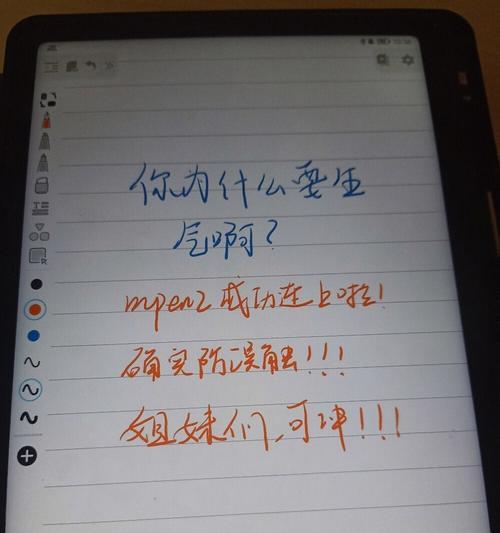 你为什么要生
气啊?
mpen2成功连上啦!
确实防误触!!!
姐妹们,可冲!!!